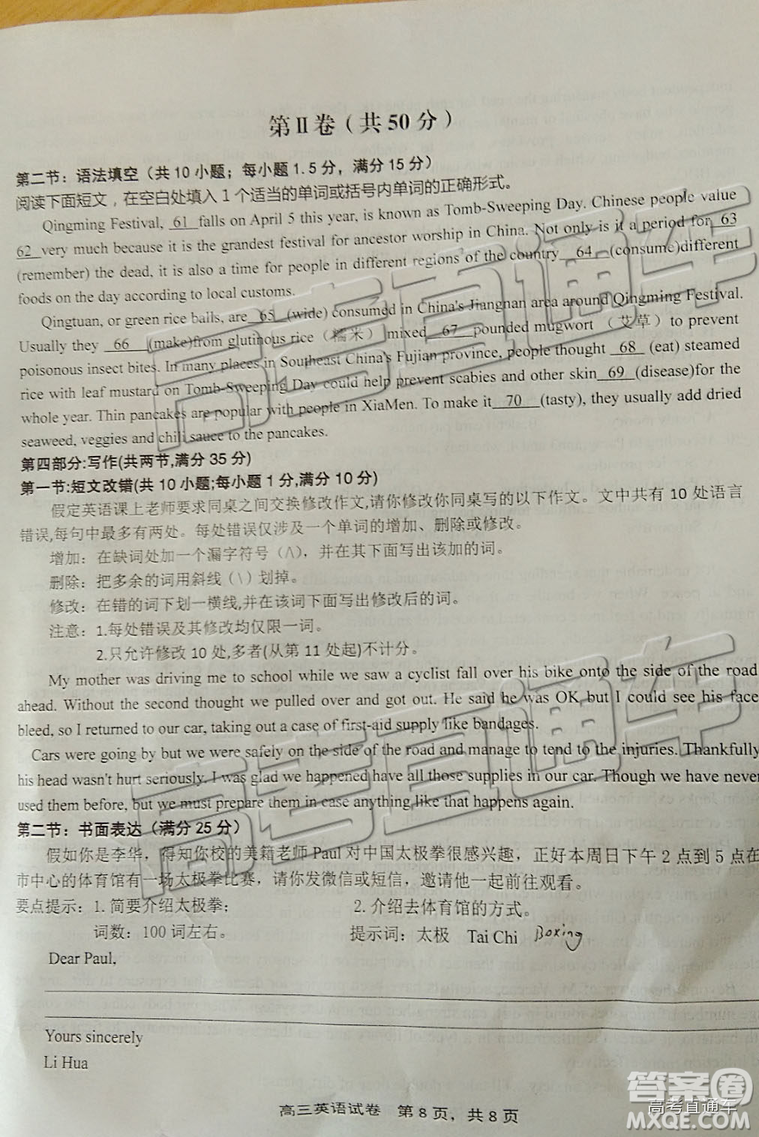 第Ⅱ卷（共50分）
第二节：语法填空（共10小题；每小题1.5分，满分15分）
阅读下面短文，在空白处填入1个适当的单词或括号内单词的正确形式。
Qingming Festival, 61 falls on April 5 this year, is known as Tomb-Sweeping Day. Chinese people value
62 very much because it is the grandest festival for ancestor worship in China. Not only is it a period for 63
(remember) the dead, it is also a time for people in different regions of the country 64 (consume)different
foods on the day according to local customs.
Qingtuan, or green rice balls, are 65 (wide) consumed in China's Jiangnan area around Qingming Festival.
Usually they 66 (make)from glutinous rice（糯米）mixed 67 pounded mugwort（艾草）to prevent
poisonous insect bites. In many places in Southeast China's Fujian province, people thought 68 (eat) steamed
rice with leaf mustard on Tomb-Sweeping Day could help prevent scabies and other skin 69 (disease)for the
whole year. Thin pancakes are popular with people in XiaMen. To make it 70 (tasty), they usually add dried
seaweed, veggies and chili sauce to the pancakes.
第四部分:写作(共两节,满分35分)
第一节:短文改错(共10小题;每小题1分,满分10分)
假定英语课上老师要求同桌之间交换修改作文,请你修改你同桌写的以下作文。文中共有10处语言
错误,每句中最多有两处。每处错误仅涉及一个单词的增加、删除或修改。
增加：在缺词处加一个漏字符号（/\），并在其下面写出该加的词。
删除：把多余的词用斜线（\）划掉。
修改：在错的词下划一横线,并在该词下面写出修改后的词。
注意：1.每处错误及其修改均仅限一词。
2.只允许修改10处,多者(从第11处起)不计分。
My mother was driving me to school while we saw a cyclist fall over his bike onto the side of the road
ahead. Without the second thought we pulled over and got out. He said he was OK, but I could see his face
bleed, so I returned to our car, taking out a case of first-aid supply like bandages.
Cars were going by but we were safely on the side of the road and manage to tend to the injuries. Thankfully
his head wasn't hurt seriously. I was glad we happened have all those supplies in our car. Though we have never
used them before, but we must prepare them in case anything like that happens again.
第二节：书面表达（满分25分）
假如你是李华，得知你校的美籍老师Paul对中国太极拳很感兴趣，正好本周日下午2点到5点在
市中心的体育馆有一场太极拳比赛，请你发微信或短信，邀请他一起前往观看。
要点提示：1.简要介绍太极拳; 2.介绍去体育馆的方式。
词数：100词左右。 提示词：太极 Tai Chi Boxing
Dear Paul,
Yours sincerely
Li Hua
高三英语试卷 第8页，共8页
高考直通车
高考直通车
答案卷
高考直通车
MXQE.COM